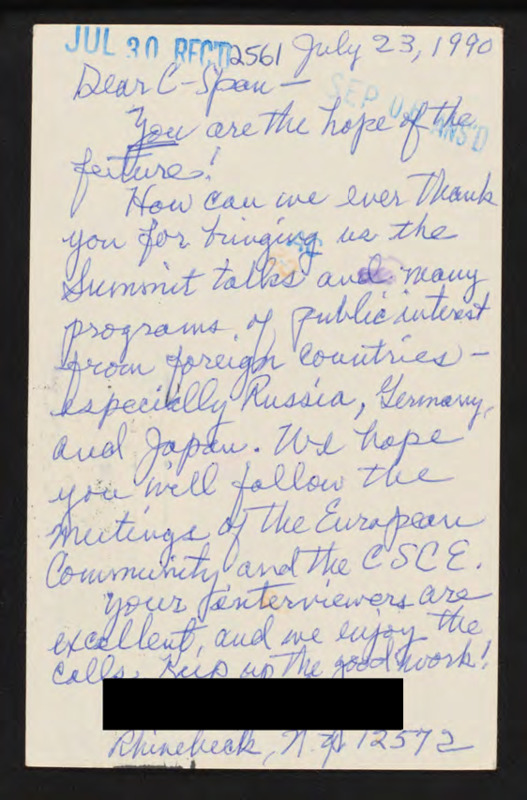 JUL 30 REC'D 2561 July 23, 1990
Dear C-Span—
SEP 0 ANS'D
You are the hope of the
future!
How can we ever thank
you for bringing us the
Summit talks and many
programs of public interest
from foreign countries –
especially Russia, Germany,
and Japan. We hope
you will follow the
meetings of the European
Community and the CSCE.
Your interviewers are
excellent, and we enjoy the
calls. Keep up the good work!
Rhinebeck, N.Y. 12572